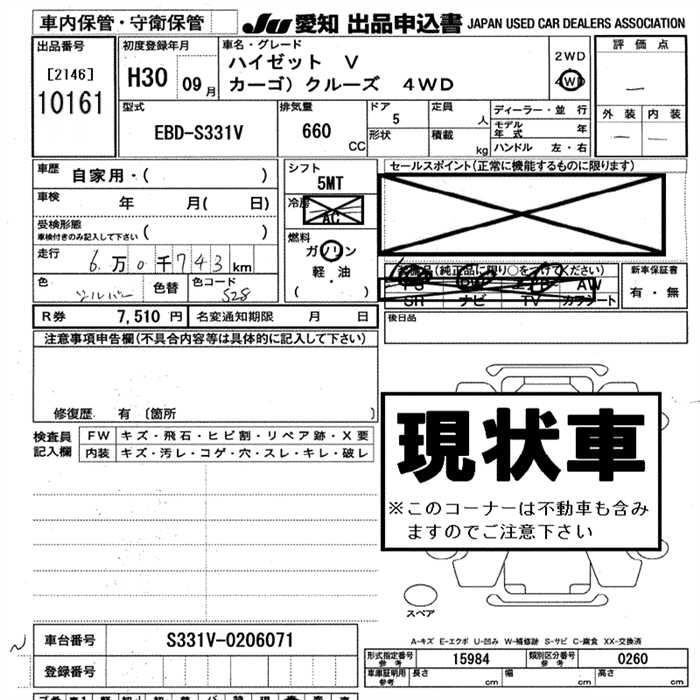 車内保管・守衛保管
JU 愛知 出品申込書 JAPAN USED CAR DEALERS ASSOCIATION
出品番号
[2146]
10161
初度登録年月
H30 09月
車名・グレード
ハイゼット V
カーゴ) クルーズ 4WD
2WD
4WD
評価点
—
外装 内装
— —
型式
EBD-S331V
排気量
660 CC
ドア
5
形状
定員
人
積載
kg
ディーラー・並 行
モデル年式 年
ハンドル 左・右
車歴
自家用・( )
車検
年 月( 日)
受検形態
車検付きのみ記入して下さい ( )
走行
6万0千743km
色
シルバー
色替
色コード
S28
シフト
5MT
冷房
AC
燃料
ガソリン
軽・油
( )
セールスポイント(正常に機能するものに限ります)
装備品(純正品に限り○をつけてください)
AW
SR ナビ TV カラシート
新車保証書
有・無
R券 7,510 円 名変通知期限 月 日
後日品
注意事項申告欄(不具合内容等は具体的に記入して下さい)
修復歴 有 〔箇所 〕
検査員
記入欄
FW キズ・飛石・ヒビ割・リペア跡・X要
内装 キズ・汚レ・コゲ・穴・スレ・キレ・破レ
現状車
※このコーナーは不動車も含み
ますのでご注意下さい
スペア
A-キズ E-エクボ U-凹み W-補修跡 S-サビ C-腐食 XX-交換済
車台番号 S331V-0206071
登録番号
形式指定番号
参考
15984
類別区分番号
参考
0260
車庫証明用
参考
長さ cm 幅 cm 高さ cm